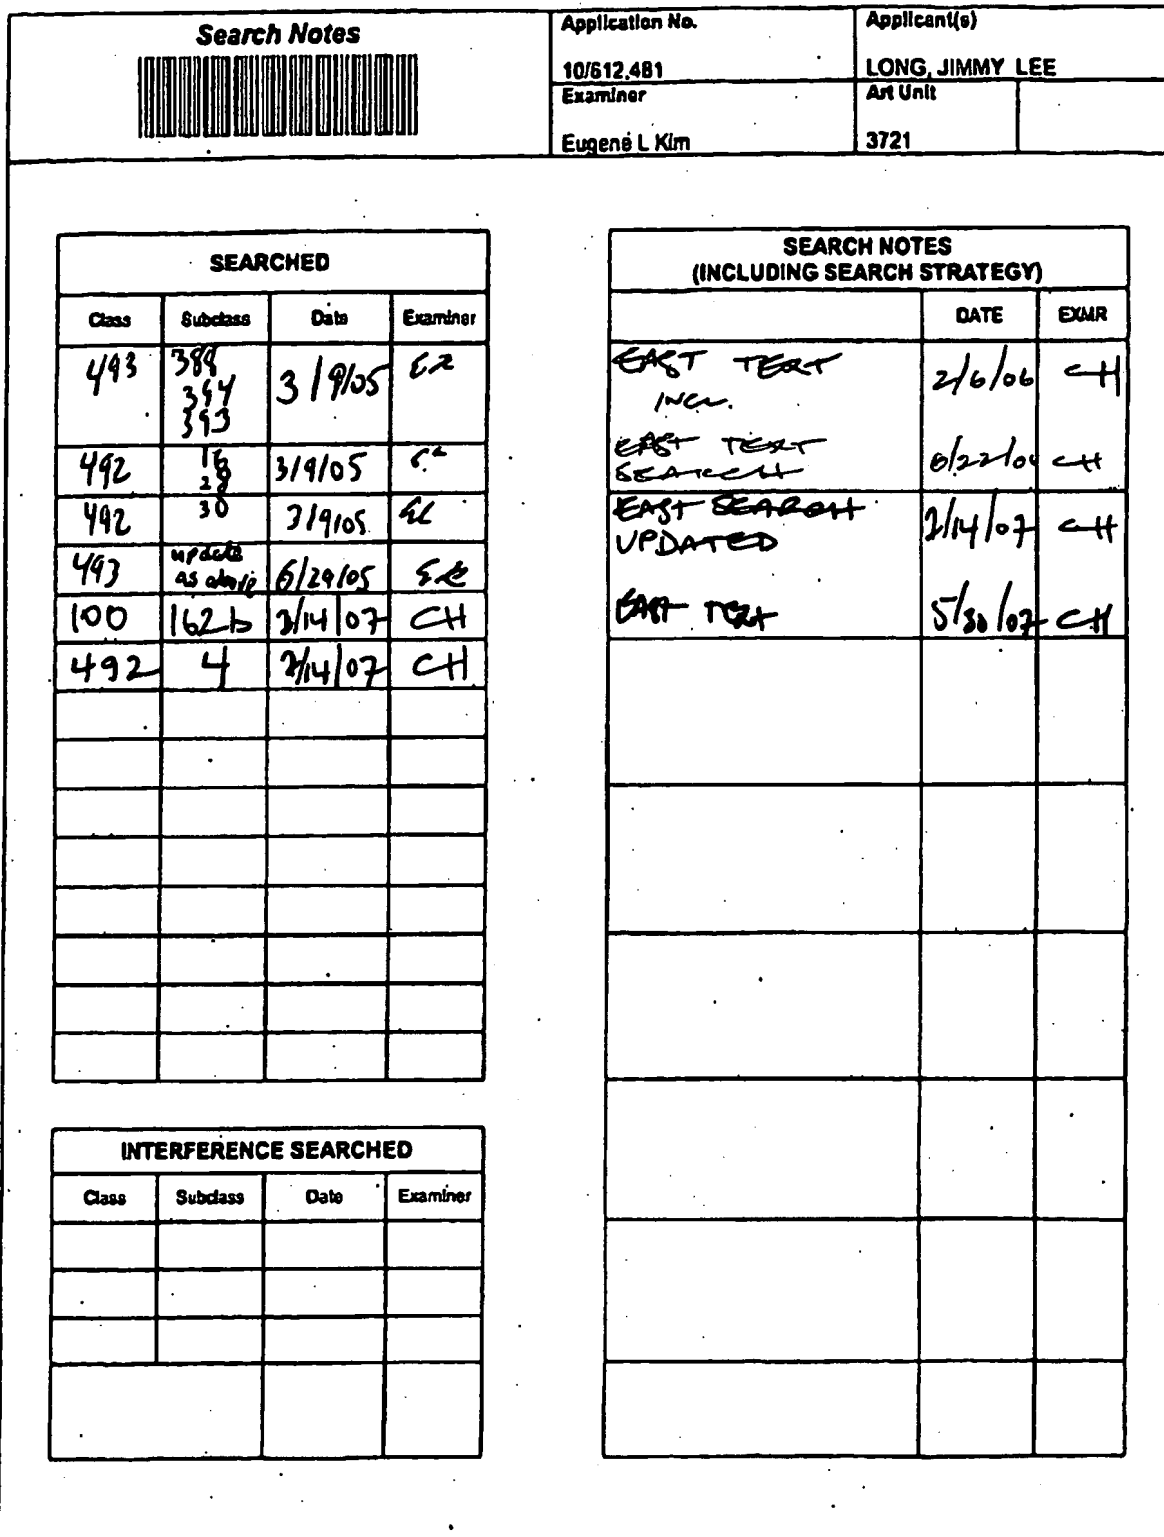 Search Notes
Application No.
10/612,481
Applicant(s)
LONG, JIMMY LEE
Examiner
Eugene L Kim
Art Unit
3721
SEARCHED
Class Subclass Date Examiner
493 388 3/9/05
394
393
492 16 3/9/05
28
492 30 3/9/05
493 update 6/29/05
as above
100 162b 2/14/07 CH
492 4 2/14/07 CH
INTERFERENCE SEARCHED
Class Subclass Date Examiner
SEARCH NOTES
(INCLUDING SEARCH STRATEGY)
DATE EXMR
EAST TEXT 2/6/06 CH
INCL.
EAST TEXT
SEARCH 6/22/06 CH
EAST SEARCH
UPDATED 2/14/07 CH
EAST TEXT 5/30/07 CH